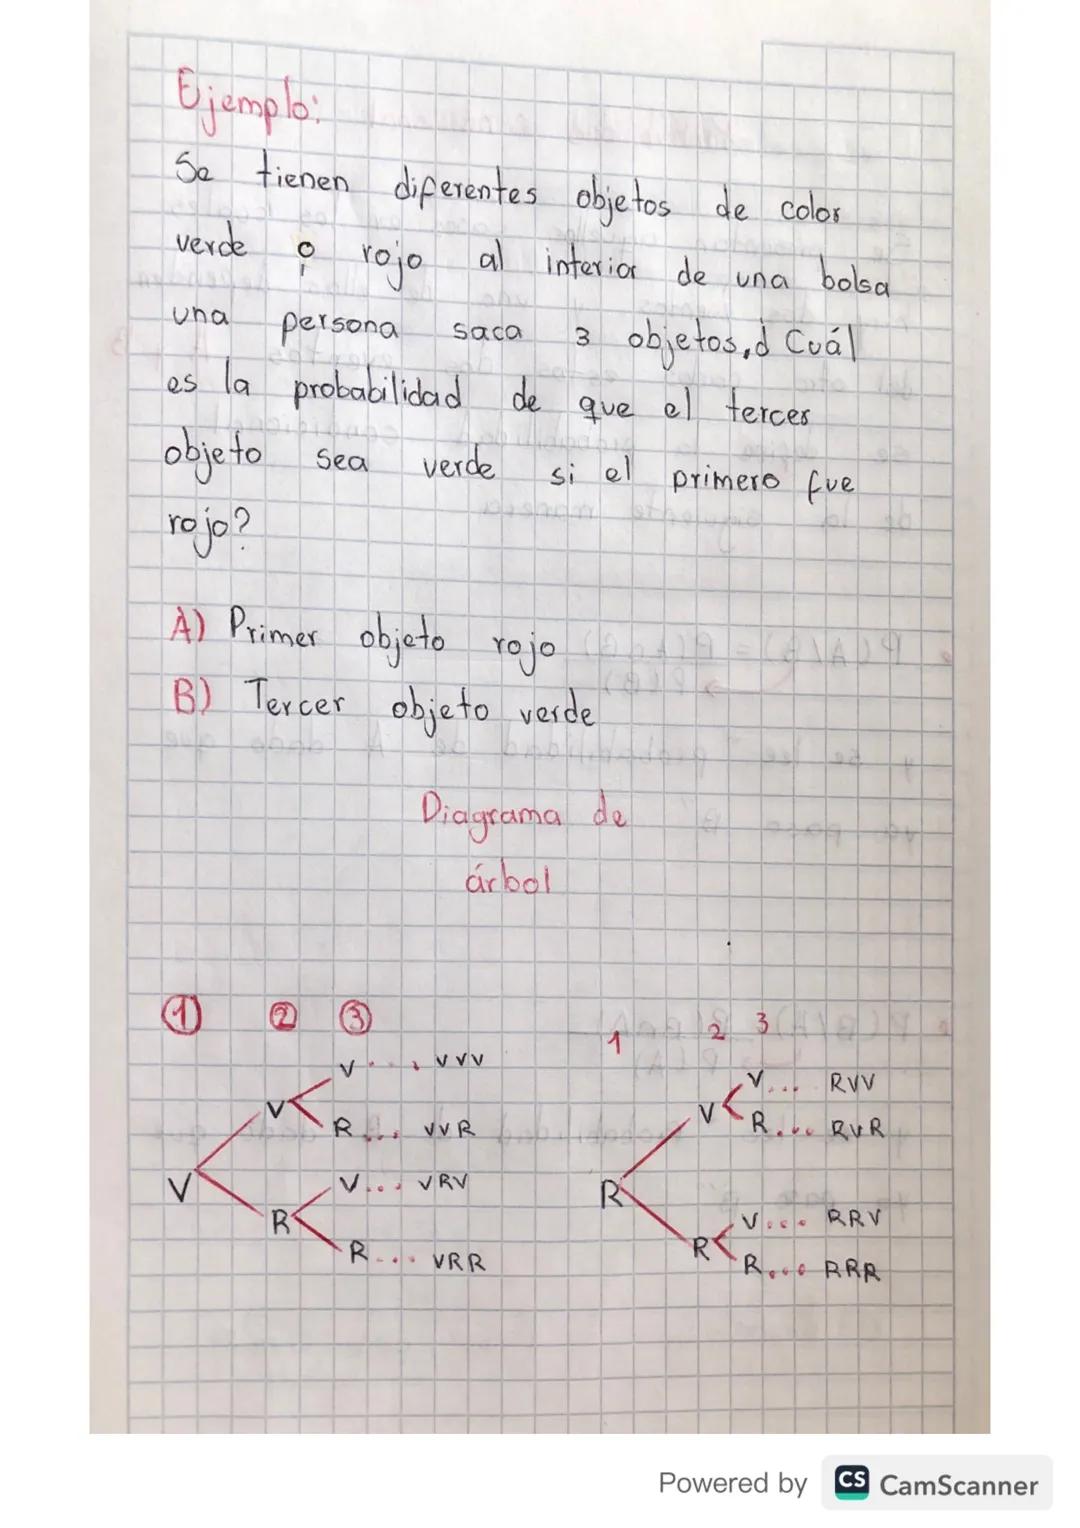 Ejemplo:
Se tienen diferentes objetos de color
verde o rojo al interior de una bolsa
una persona saca 3 objetos, ¿Cuál
es la probabilidad de que el tercer
objeto sea verde si el primero fue
rojo?
A) Primer objeto rojo
B) Tercer objeto verde
Diagrama de
árbol
1 2 3
V... VVV
V
R... VVR
V
V... VRV
R
R... VRR
1 2 3
V... RVV
V
R... RVR
R
V... RRV
R
R... RRR
Powered by CS CamScanner